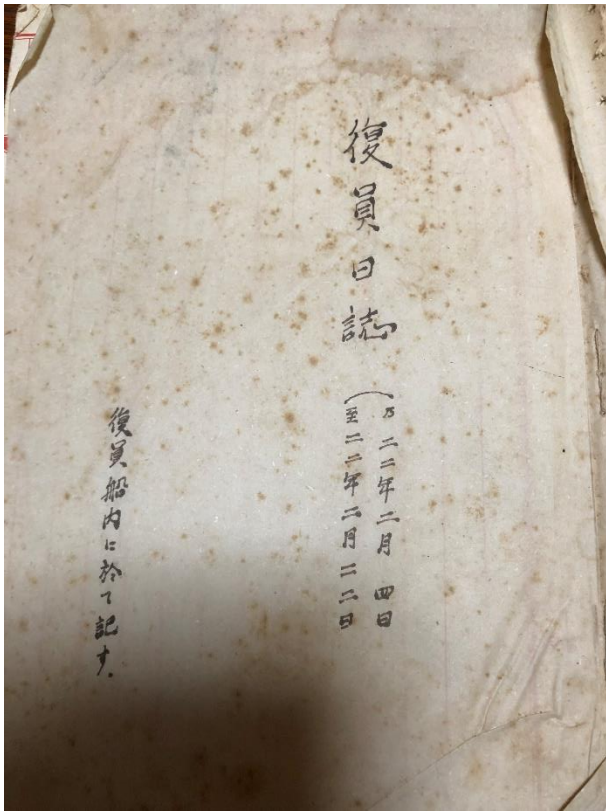 復員日誌
(乃 二二年二月 四日
至 二二年二月二二日
復員船内に於て記す、